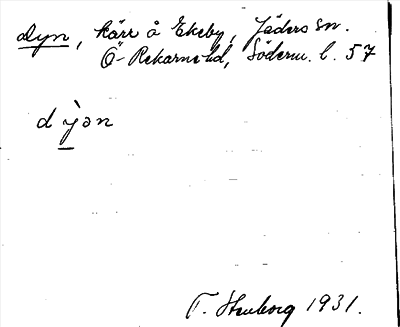 Dyn, kärr å Ekeby, Jäders sn.
Ö-Rekarne hd, Söderm. l. 57
d ỳ ən
T. Stenborg 1931.